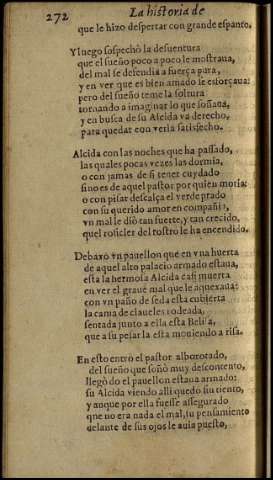 272 La historia de
que le hizo despertar con grande espanto.
Y luego sospechò la desuentura
que el sueño poco a poco le mostraua,
del mal se defendia a fuerça pura,
y en ver que es bien amado se esforçaua:
pero del sueño teme la soltura
tornando a imaginar lo que soñaua,
y en busca de su Alcida va derecho,
para quedar con verla satisfecho.
Alcida con las noches que ha passado,
las quales pocas vezes las dormia,
o con jamas de si tener cuydado
sino es de aquel pastor por quien moria:
o con pisar descalça el verde prado
con su querido amor en compañia,
vn mal le diò tan fuerte, y tan crecido,
quel rosicler del rostro le ha encendido.
Debaxo vn pauellon que en vna huerta
de aquel alto palacio armado estaua,
esta la hermosa Alcida casi muerta
en ver el graue mal que le aquexaua:
con vn paño de seda esta cubierta
la cama de claueles rodeada,
sentada junto a ella esta Belisa,
que a su pesar la esta mouiendo a risa.
En esto entrò el pastor alborotado,
del sueño que soñò muy descontento,
llegò do el pauellon estaua armado:
su Alcida viendo alli quedo sin tiento,
y aunque por ella fuesse assegurado
que no era nada el mal, su pensamiento
delante de sus ojos le auia puesto,